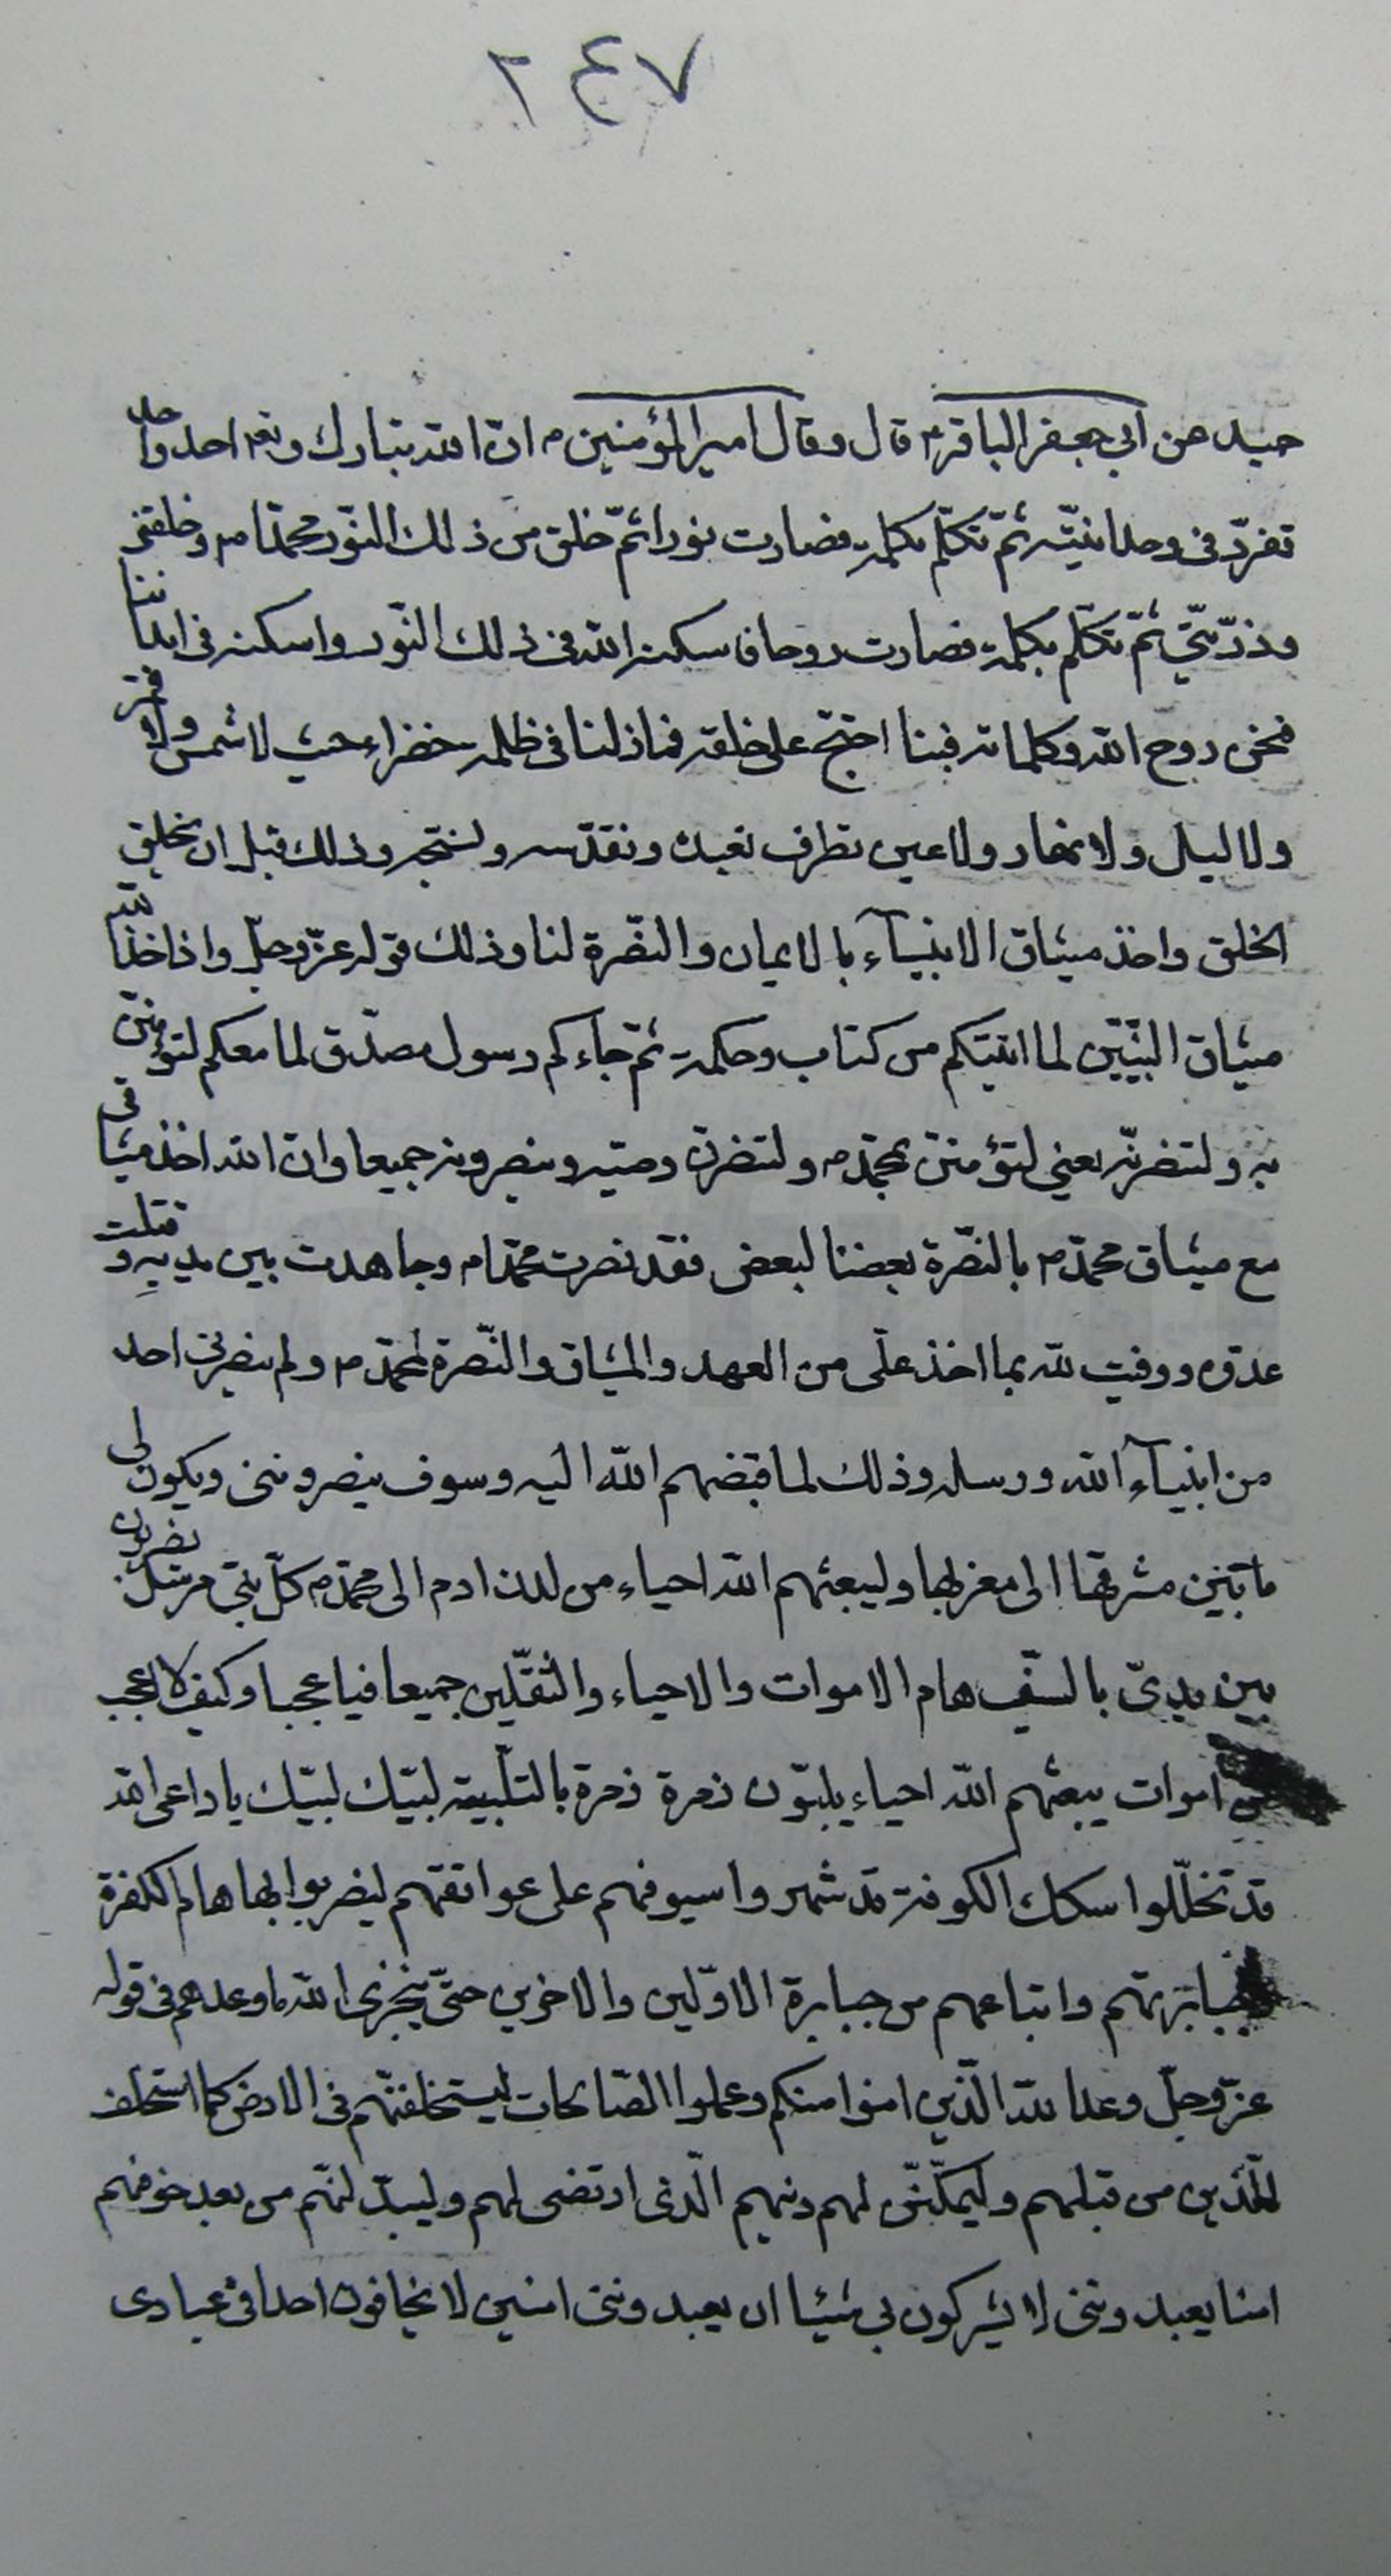 ٢٤٧
حميد عن ابي جعفر الباقر م قال وقال امير المؤمنين م ان الله تبارك وتعـ احد واحد
تفرّد في وحدانيّته ثمّ تكلّم بكلمة فصارت نورا ثمّ خلق من ذلك النّور محمّدا م وخلقني
وذرّيّتي ثمّ تكلّم بكلمة فصارت روحا فاسكنه الله في ذلك النّور واسكنه في ابداننا
فنحن روح الله وكلماته فبنا احتجّ على خلقه فما زلنا في ظلمة خضراء حيث لا شمس ولا قمر
ولا ليل ولا نهار ولا عين تطرف نعبده ونقدّسه ونسبّحه وذلك قبل ان يخلق
الخلق واخذ ميثاق الانبيآء بالايمان والنّصرة لنا وذلك قوله عزّ وجلّ واذ اخذ الله
ميثاق النّبيّين لما اتيتكم من كتاب وحكمة ثمّ جآءكم رسول مصدّق لما معكم لتؤمننّ
به ولتنصرنّه يعني لتؤمننّ بمحمّد م ولتنصرنّ وصيّه وينصرونه جميعا وانّ الله اخذ ميثاقي
مع ميثاق محمّد م بالنّصرة بعضنا لبعض فقد نصرت محمّدا م وجاهدت بين يديه وقتلت
عدوّه ووفيت لله بما اخذ علّى من العهد والميثاق والنّصرة لمحمّد م ولم ينصرني احد
من انبيآء الله ورسله وذلك لما قبضهم الله اليه وسوف ينصرونني ويكون لي
ما بين مشرقها الى مغربها وليبعثهم الله احياء من لدن ادم الى محمّد م كلّ نبّي مرسل يضربون
بين يديّ بالسّيف هام الاموات والاحياء والثّقلين جميعا فيا عجبا وكيف لا اعجب
من اموات يبعثهم الله احياء يلبّون زمرة زمرة بالتّلبية لبّيك لبّيك يا داعى الله
قد تخلّلوا سكك الكوفة قد شهروا سيوفهم على عواتقهم ليضربوا بها هام الكفرة
وجبابرتهم واتباعهم من جبابرة الاوّلين والاخرين حتّى ينجزى الله ما وعدهم في قوله
عزّ وجلّ وعد الله الّذين امنوا منكم وعملوا الصّالحات ليستخلفنّهم في الارض كما استخلف
الّذين من قبلهم وليمكّننّ لهم دينهم الّذي ارتضى لهم وليبدّلنّهم من بعد خوفهم
امنا يعبدونني لا يشركون بي شيئا اى يعبدونني امنين لا يخافون احدا في عبادى